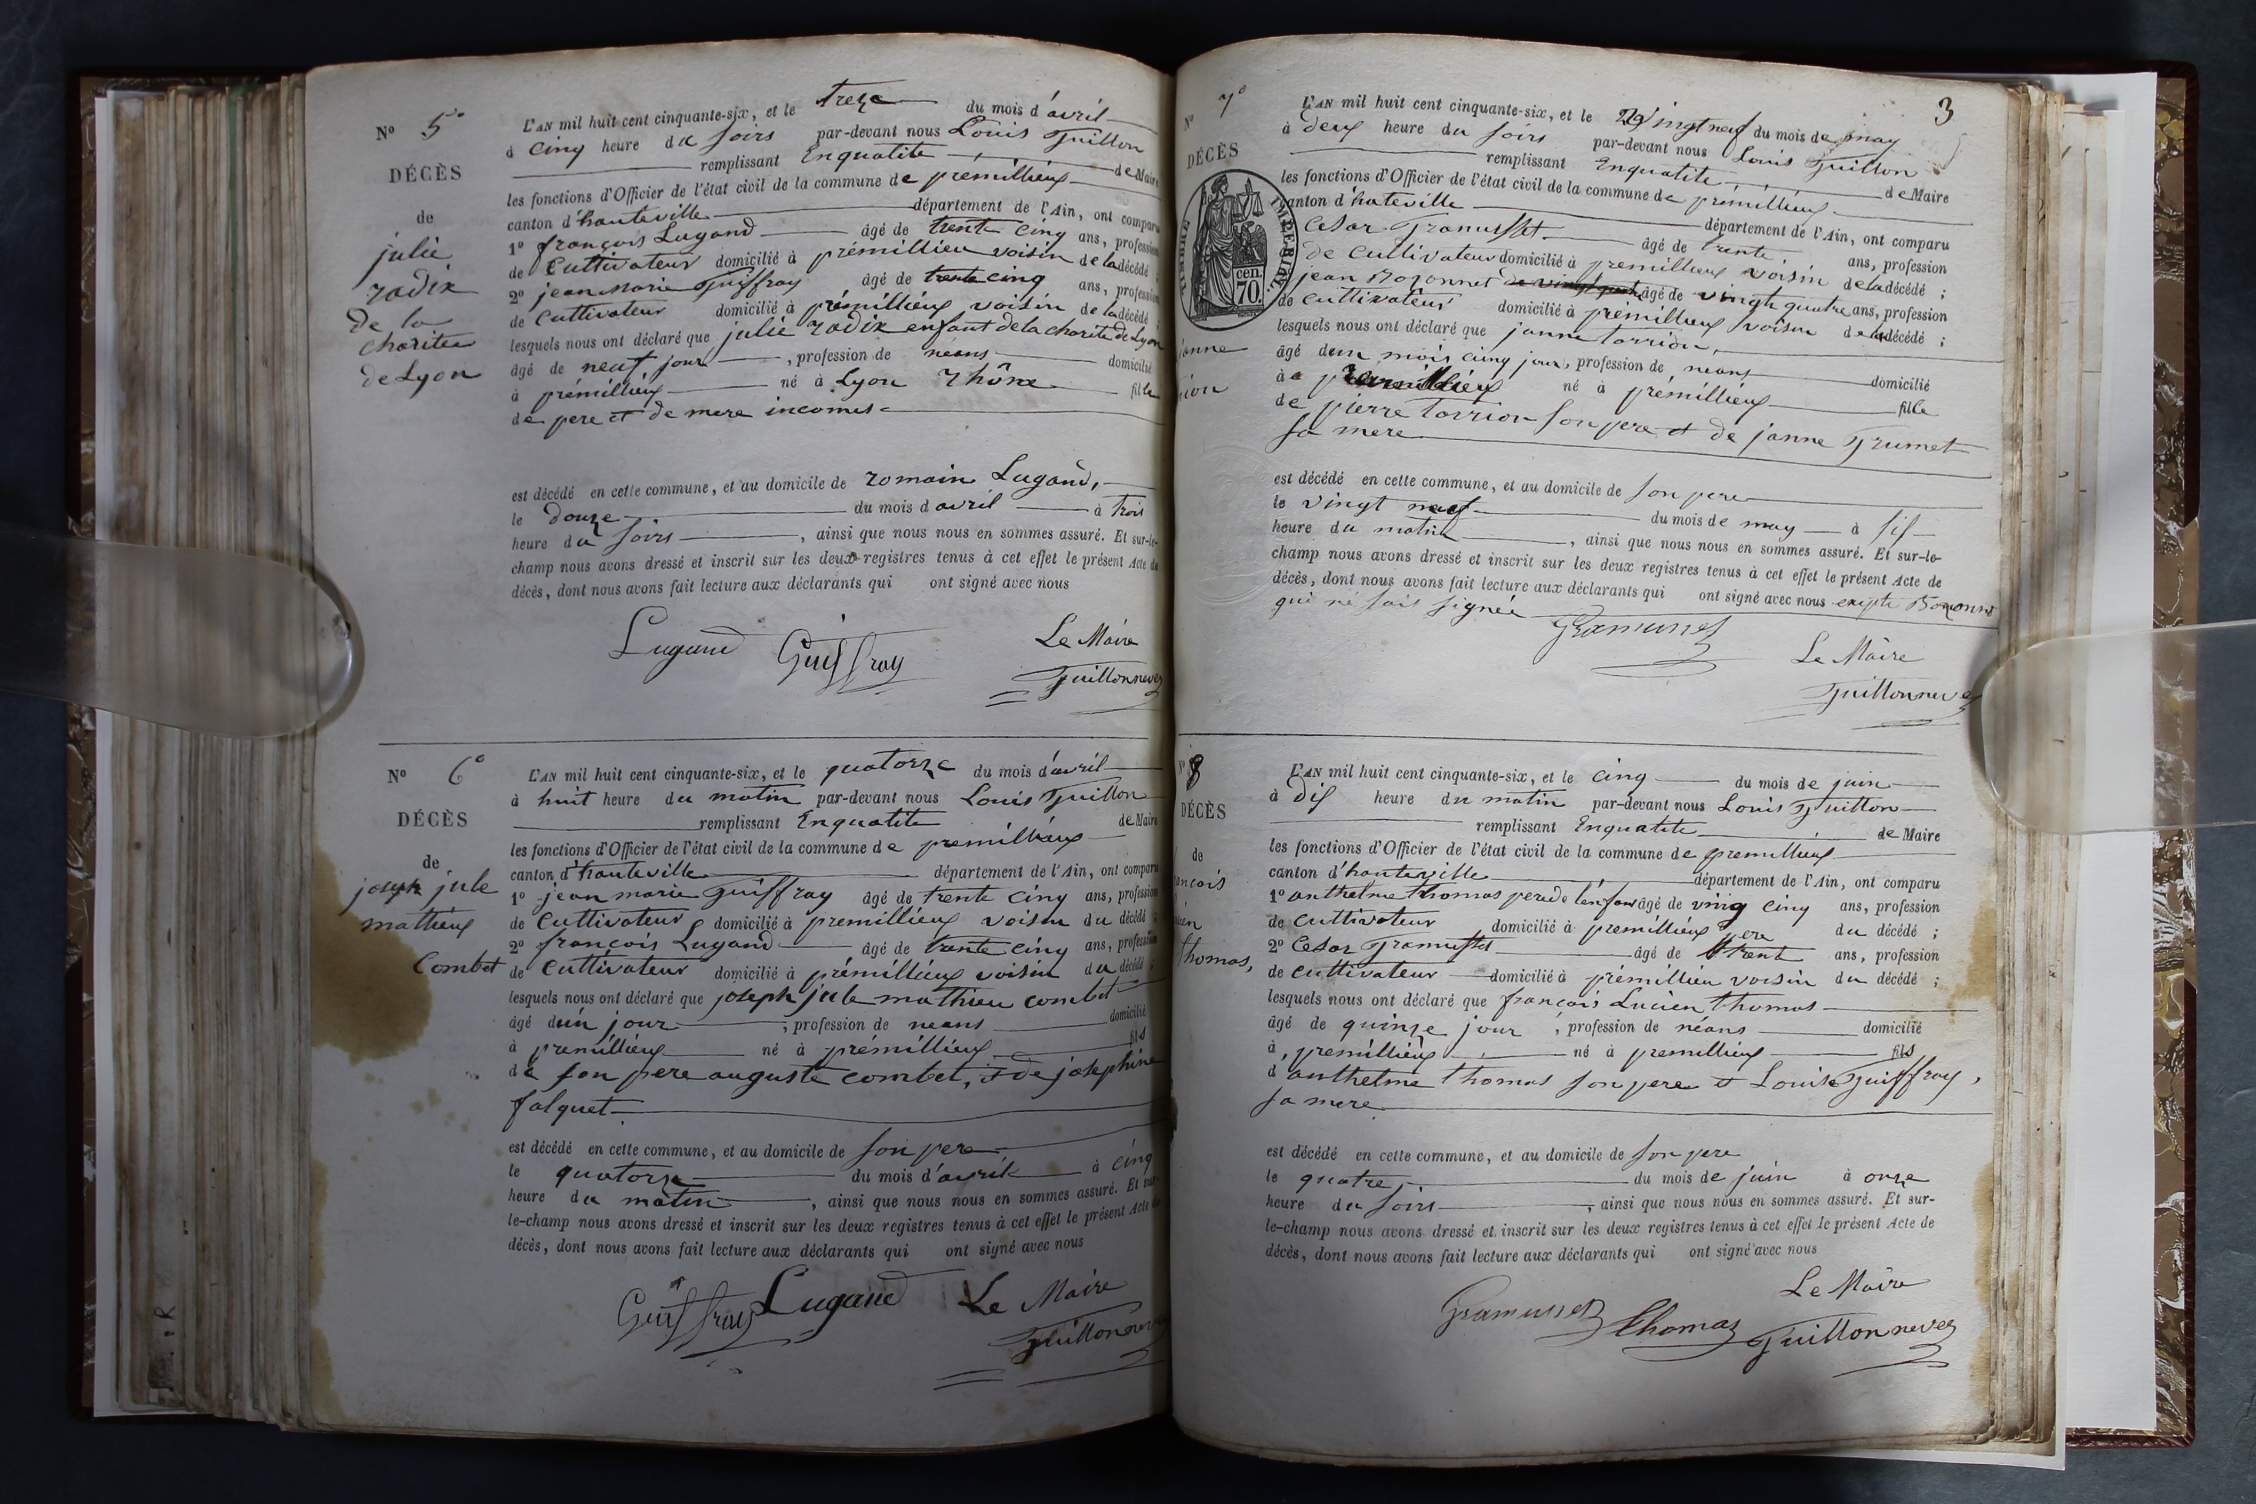 Nº 5º
DÉCÈS
de
julie
radix
de la
charitee
de Lyon
L'AN mil huit cent cinquante-six, et le treze du mois d'avril
à cinq heure du soirs par-devant nous Louis Guillon
remplissant Enqualite de Maire
les fonctions d'Officier de l'état civil de la commune de prémillieux
canton d'hauteville département de l'Ain, ont comparu
1º françois Lugand âgé de trente cinq ans, profession
de Cultivateur domicilié à prémillieu voisin de la décédé
2º jean Marie Guiffray âgé de trente cinq ans, profession
de Cultivateur domicilié à prémillieux voisin de la décédé ;
lesquels nous ont déclaré que julie radix enfant de la charite de Lyon
âgé de neuf jour , profession de néans domicilié
à prémillieux né à Lyon rhône fille
de pere et de mere inconnus
est décédé en cette commune, et au domicile de romain Lugand,
le douze du mois d avril à trois
heure du soirs , ainsi que nous nous en sommes assuré. Et sur-le-
champ nous avons dressé et inscrit sur les deux registres tenus à cet effet le présent Acte de
décès, dont nous avons fait lecture aux déclarants qui ont signé avec nous
Lugand Guiffray Le Maire
Guillonneves
Nº 6º
DÉCÈS
de
joseph jule
mathieux
Combet
L'AN mil huit cent cinquante-six, et le quatorze du mois d'avril
à huit heure du matin par-devant nous Louis Guillon
remplissant Enqualite de Maire
les fonctions d'Officier de l'état civil de la commune de premillieux
canton d'hauteville département de l'Ain, ont comparu
1º jean marie Guiffray âgé de trente cinq ans, profession
de Cultivateur domicilié à premillieux voisin du décédé ;
2º françois Lugand âgé de trente cinq ans, profession
de Cultivateur domicilié à prémillieux voisin du décédé ;
lesquels nous ont déclaré que joseph jule mathieu combet
âgé d'un jour ; profession de neans domicilié
à premillieux né à prémillieux fils
de son pere auguste combet, et de josephine
falquet
est décédé en cette commune, et au domicile de son pere
le quatorze du mois d'avril à cinq
heure du matin , ainsi que nous nous en sommes assuré. Et sur-
le-champ nous avons dressé et inscrit sur les deux registres tenus à cet effet le présent Acte de
décès, dont nous avons fait lecture aux déclarants qui ont signé avec nous
Guiffray Lugand Le Maire
Guillonneves
3
Nº 7º
DÉCÈS
TIMBRE IMPERIAL
cen.
70.
janne
rion
L'AN mil huit cent cinquante-six, et le vingt neuf du mois de may
à deux heure du soirs par-devant nous Louis Guillon
remplissant Enqualite de Maire
les fonctions d'Officier de l'état civil de la commune de prémillieux
canton d'hateville département de l'Ain, ont comparu
Cesar Gramusset âgé de trente ans, profession
de Cultivateur domicilié à premillieux voisin de la décédé ;
jean Bozonnet âgé de vingt quatre ans, profession
de cultivateur domicilié à prémillieux voisin de la décédé ;
lesquels nous ont déclaré que janne torrion
âgé d'un mois cinq jour, profession de neans domicilié
à premillieux né à prémillieux fille
de pierre torrion son pere et de janne Grumet
sa mere
est décédé en cette commune, et au domicile de son pere
le vingt neuf du mois de may à six
heure du matin , ainsi que nous nous en sommes assuré. Et sur-le-
champ nous avons dressé et inscrit sur les deux registres tenus à cet effet le présent Acte de
décès, dont nous avons fait lecture aux déclarants qui ont signé avec nous exepte Bozonnet
qui ne sais signée Gramusset
Le Maire
Guillonneves
Nº 8
DÉCÈS
de
ancois
ien
thomas,
L'AN mil huit cent cinquante-six, et le cinq du mois de juin
à dix heure du matin par-devant nous Louis Guillon
remplissant Enqualite de Maire
les fonctions d'Officier de l'état civil de la commune de premillieux
canton d'hauteville département de l'Ain, ont comparu
1º anthelme thomas pere de l'enfant âgé de ving cinq ans, profession
de Cultivateur domicilié à premillieux pere du décédé ;
2º Cesar Gramusset âgé de trent ans, profession
de cultivateur domicilié à prémillieu voisin du décédé ;
lesquels nous ont déclaré que françois Lucien thomas
âgé de quinze jour ; profession de néans domicilié
à premillieux né à premillieux fils
d'anthelme thomas son pere et Louise Guiffray,
sa mere
est décédé en cette commune, et au domicile de son pere
le quatre du mois de juin à onze
heure du soirs , ainsi que nous nous en sommes assuré. Et sur-
le-champ nous avons dressé et inscrit sur les deux registres tenus à cet effet le présent Acte de
décès, dont nous avons fait lecture aux déclarants qui ont signé avec nous
Le Maire
Gramusset thomas Guillonneves